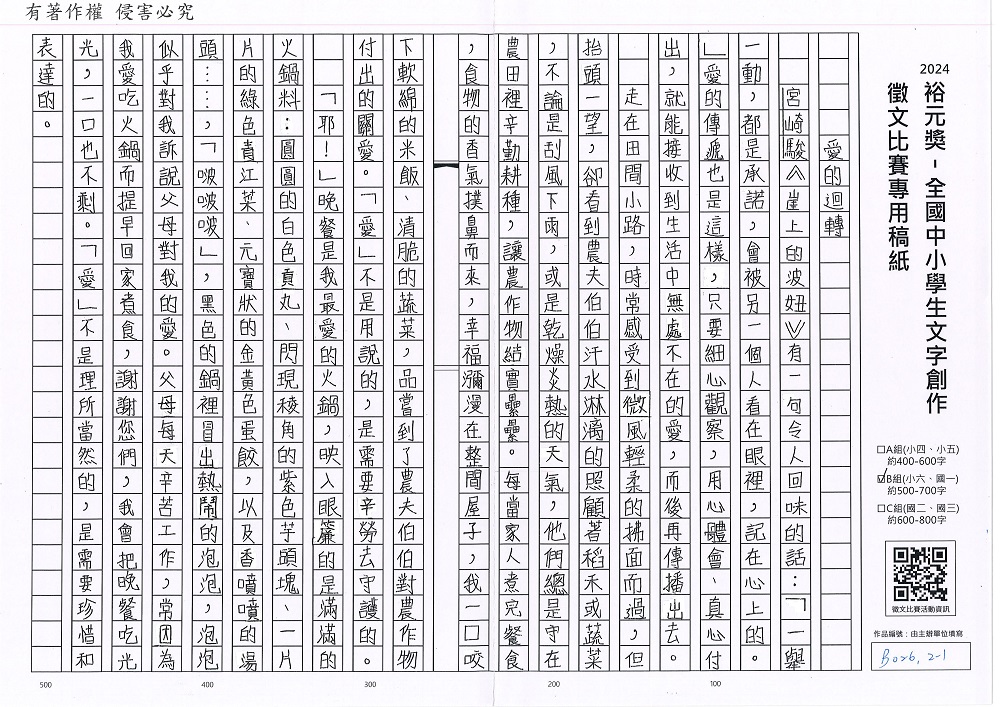 有著作權 侵害必究
2024
裕元獎-全國中小學生文字創作
徵文比賽專用稿紙
□A組(小四、小五)
約400-600字
☑B組(小六、國一)
約500-700字
□C組(國二、國三)
約600-800字
徵文比賽活動資訊
作品編號:由主辦單位填寫
B026, 2-1
愛的迴轉
宮崎駿《崖上的波妞》有一句令人回味的話:「一舉
一動,都是承諾,會被另一個人看在眼裡,記在心上的。
」愛的傳遞也是這樣,只要細心觀察,用心體會、真心付
出,就能接收到生活中無處不在的愛,而後再傳播出去。
走在田間小路,時常感受到微風輕柔的拂面而過,但
抬頭一望,卻看到農夫伯伯汗水淋漓的照顧著稻禾或蔬菜
,不論是刮風下雨,或是乾燥炎熱的天氣,他們總是守在
農田裡辛勤耕種,讓農作物結實纍纍。每當家人煮完餐食
,食物的香氣撲鼻而來,幸福瀰漫在整間屋子,我一口咬
下軟綿的米飯、清脆的蔬菜,品嘗到了農夫伯伯對農作物
付出的關愛。「愛」不是用說的,是需要辛勞去守護的。
「耶!」晚餐是我最愛的火鍋,映入眼簾的是滿滿的
火鍋料:圓圓的白色貢丸、閃現稜角的紫色芋頭塊、一片
片的綠色青江菜、元寶狀的金黃色蛋餃,以及香噴噴的湯
頭……,「啵啵啵」,黑色的鍋裡冒出熱鬧的泡泡,泡泡
似乎對我訴說父母對我的愛。父母每天辛苦工作,常因為
我愛吃火鍋而提早回家煮食,謝謝您們,我會把晚餐吃光
光,一口也不剩。「愛」不是理所當然的,是需要珍惜和
表達的。
100
200
300
400
500